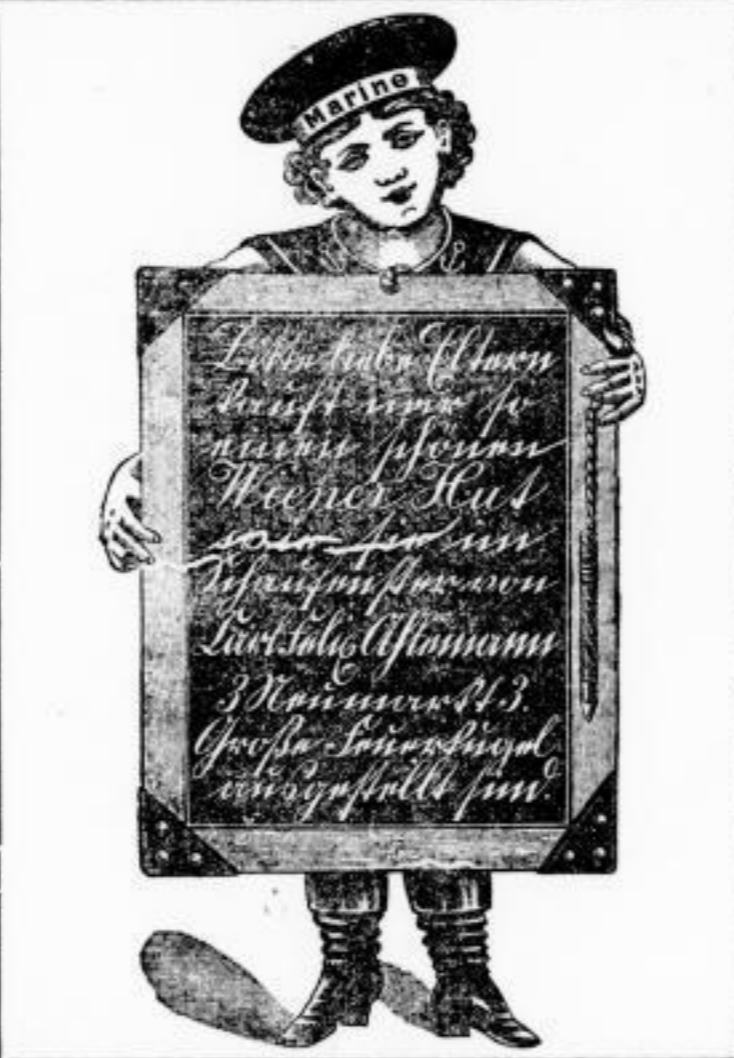 Marine
Bitte liebe Eltern
kauft mir so
einen schönen
Wiener Hut
wie sie im
Schaufenster von
Felix
3 Neumarkt 3.
Große Feuerkugel
ausgestellt sind.